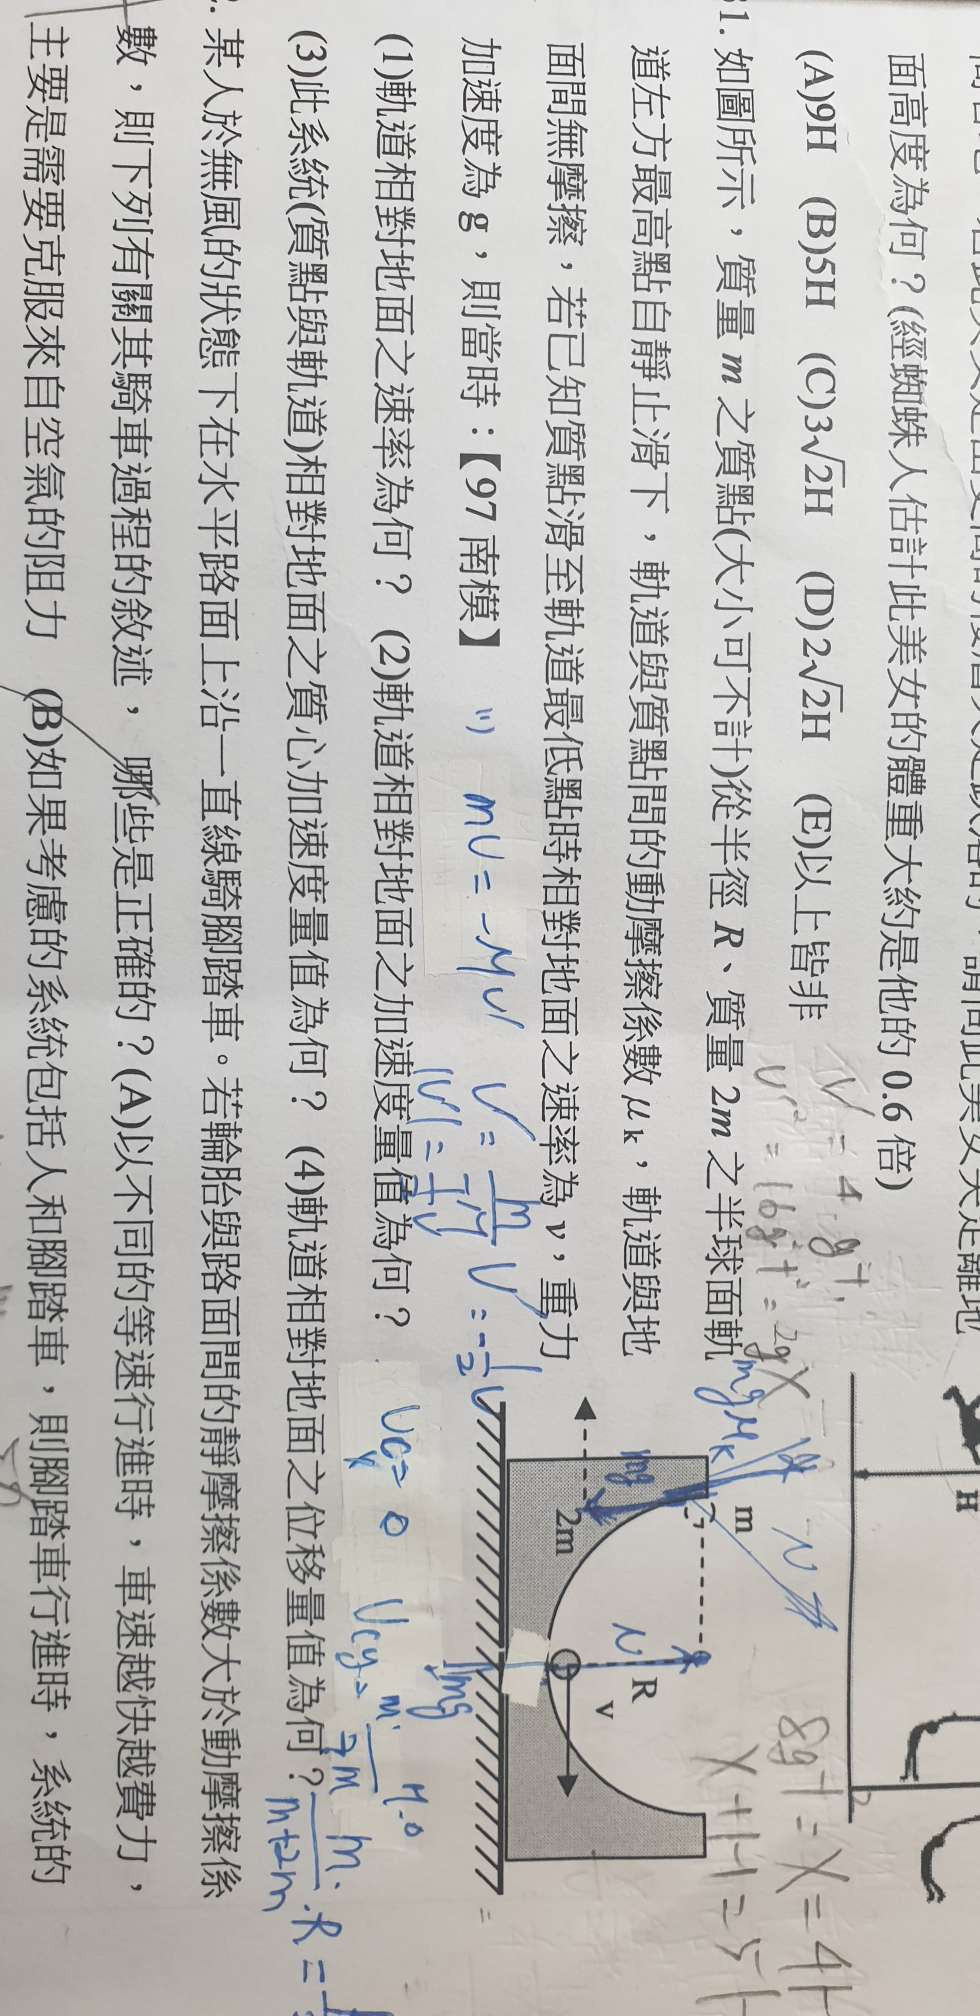 面高度為何？(經蜘蛛人估計此美女的體重大約是他的 0.6 倍)
(A)9H (B)5H (C)3√2H (D)2√2H (E)以上皆非
31. 如圖所示，質量 m 之質點(大小可不計)從半徑 R、質量 2m 之半球面軌
道左方最高點自靜止滑下，軌道與質點間的動摩擦係數 μk，軌道與地
面間無摩擦，若已知質點滑至軌道最低點時相對地面之速率為 v，重力
加速度為 g，則當時：【97 南模】
(1)軌道相對地面之速率為何？ (2)軌道相對地面之加速度量值為何？
(3)此系統(質點與軌道)相對地面之質心加速度量值為何？ (4)軌道相對地面之位移量值為何？
某人於無風的狀態下在水平路面上沿一直線騎腳踏車。若輪胎與路面間的靜摩擦係數大於動摩擦係
數，則下列有關其騎車過程的敘述，哪些是正確的？(A)以不同的等速行進時，車速越快越費力，
主要是需要克服來自空氣的阻力 (B)如果考慮的系統包括人和腳踏車，則腳踏車行進時，系統的
H
m
2m
R
v
mgμk
mg
N
N
mg
8gt = X = 4H
X+H=5H